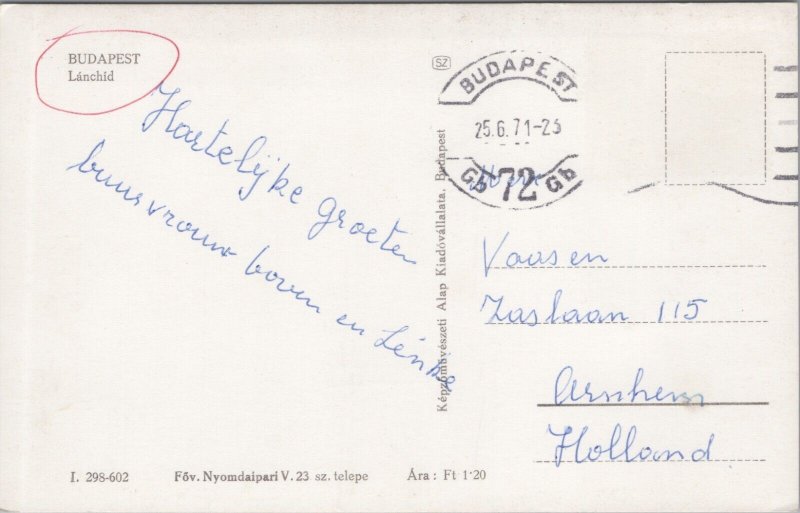 BUDAPEST
Lánchíd
Hartelijke groeten
buurvrouw boven en Lénke
SZ
Képzőművészeti Alap Kiadóvállalata, Budapest
BUDAPEST
25.6.71-23
Gb 72 Gb
Vaasen
Zaslaan 115
Arnhem
Holland
I. 298-602
Főv. Nyomdaipari V. 23 sz. telepe
Ára: Ft 1·20